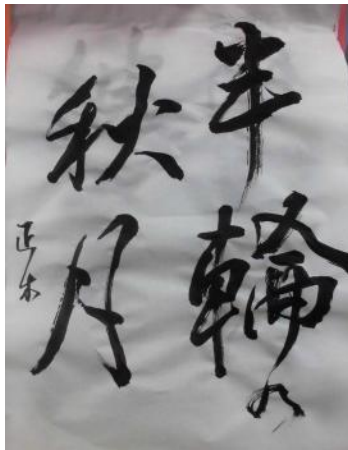 半輪の
秋月
正木